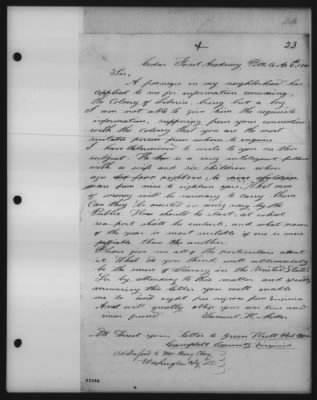 4
23
Cedar Forest Academy Pitts. Co.
Sir,
A freenegro in my neighborhood has
applied to me for information concerning
the Colony of Liberia, being but a boy
I am not able to give him the requisite
information, supposing from your connexion
with the colony that you are the most
suitable person from whom to enquire
I have determined to write to you on this
subject. He is a very intelligent fellow
with a wife and six children whose
ages
are from nine to eighteen years. What sum
of money will be necessary to carry them
Can they be assisted in any way by the
Public How should he start, at what
sea port shall he embark, and what season
of the year is most suitable if one is more
preferable than another.
Please give me all of the particulars about
it. What do you think will ultimately
be the issue of slavery in the United States
Sir by attending to this matter and speedily
answering this letter you will enable
me to send eight free negroes from Virginia
And will greatly oblige your
Samuel H. Miller
NB Direct your letter to Green Hill
Campbell County Virginia
Addressed to Mr. Henry Clay
Washington City